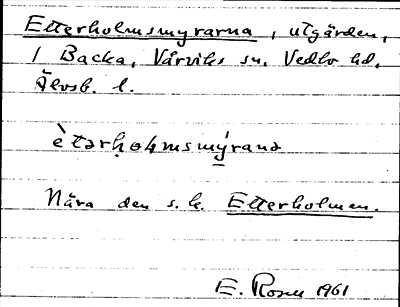 Etterholmsmyrarna, utgården,
1 Backa, Vårviks sn. Vedbo hd,
Älvsb. l.
ètərhɷɬmsmýrana
Nära den s.k. Etterholmen.
E. Rosén 1961